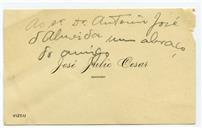 ao sr Dr Antonio José
d'Almeida um abraço
do amigo
José Julio Cesar
VIZEU